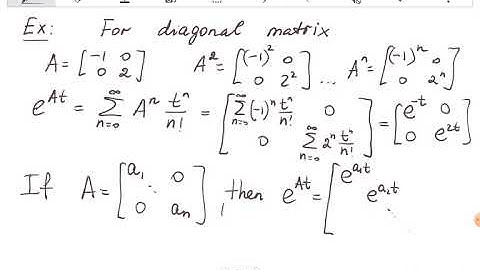 Ex: For diagonal matrix
A = [-1 0; 0 2] A² = [(-1)² 0; 0 2²] ... Aⁿ = [(-1)ⁿ 0; 0 2ⁿ]
e^{At} = ∑_{n=0}^{∞} Aⁿ tⁿ/n! = [∑_{n=0}^{∞} (-1)ⁿ tⁿ/n! 0; 0 ∑_{n=0}^{∞} 2ⁿ tⁿ/n!] = [e^{-t} 0; 0 e^{2t}]
If A = [a₁ ⋱ 0; 0 aₙ], then e^{At} = [e^{a₁t} e^{a₂t} ⋱